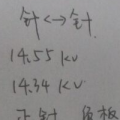 针<->针
14.55 kv
14.34 kv
正针 负板